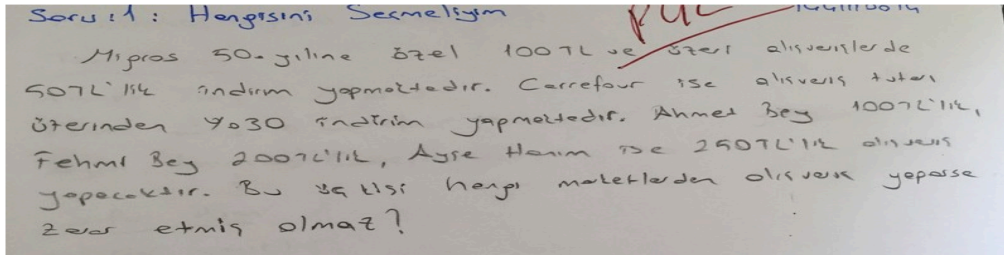 Soru :1 : Hangisini Seçmeliyim
Migros 50. yılına özel 100 TL ve üzeri alışverişlerde
50TL'lik indirim yapmaktadır. Carrefour ise alışveriş tutarı
üzerinden %30 indirim yapmaktadır. Ahmet Bey 100TL'lik,
Fehmi Bey 200TL'lik, Ayşe Hanım ise 250TL'lik alışveriş
yapacaktır. Bu üç kişi hangi marketlerden alışveriş yaparsa
zarar etmiş olmaz?